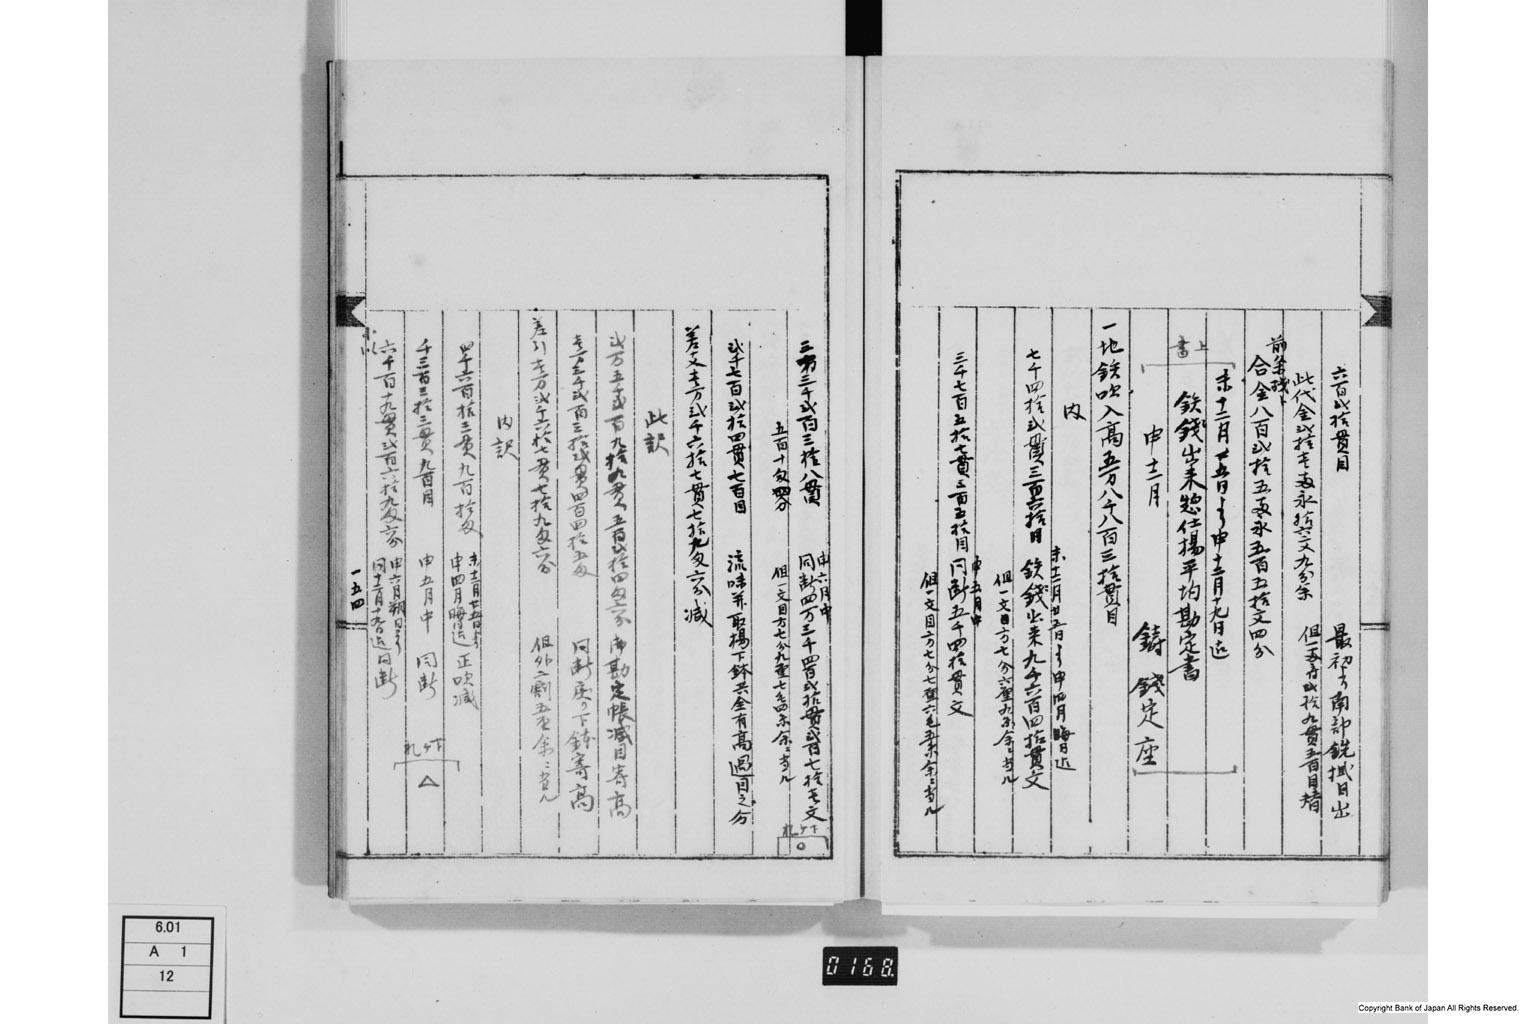 六百弐拾貫目
最初ゟ南部銑拭目出
此代金弐拾壱両永拾六文九分余
但一両ニ付弐拾九貫五百目替
前条残
合金八百弐拾五両永五百五拾文四分
上書
未十二月廿五日ゟ申十二月十九日迄
鉄銭出来惣仕揚平均勘定書
申十二月
鋳銭定座
一地鉄吹入高五万八千八百三拾貫目
内
未十二月廿五日ゟ申四月晦日迄
七千四拾弐貫三百六拾目
鉄銭出来九千六百四拾貫文
但一文目方七分六厘九毛余ニ当ル
申五月中
三千七百五拾七貫三百五拾目
同断五千四拾貫文
但一文目方七分七厘六毛五余ニ当ル
三万三千弐百三拾八貫
五百十匁四分
申六月中
同断四万三千四百弐拾貫弐百七拾壱文
但一文目方七分九厘七毛四余ニ当ル
下ケ札
○
弐千七百弐拾四貫七百目
流味并取揚下鉢共全有高過目之分
差支壱万弐千六拾七貫七拾九匁六分減
此訳
弐万五千弐百九拾九貫五百弐拾四匁六分
御勘定帳減目寄高
壱万三千弐百三拾弐貫四百四拾五匁
同断戻り下鉢寄高
差引壱万弐千六拾七貫七拾九匁六分
但外二割五厘余ニ当ル
内訳
四千六百拾三貫九百拾匁
未十二月廿五日ゟ
申四月晦日迄
正吹減
千三百三拾三貫九百目
申五月中
同断
下ケ札
△
六千百十九貫弐百六拾九匁六分
申六月朔日ゟ
同十二月十九日迄同断
一五四
6.01
A 1
12
0168.
Copyright Bank of Japan All Rights Reserved.